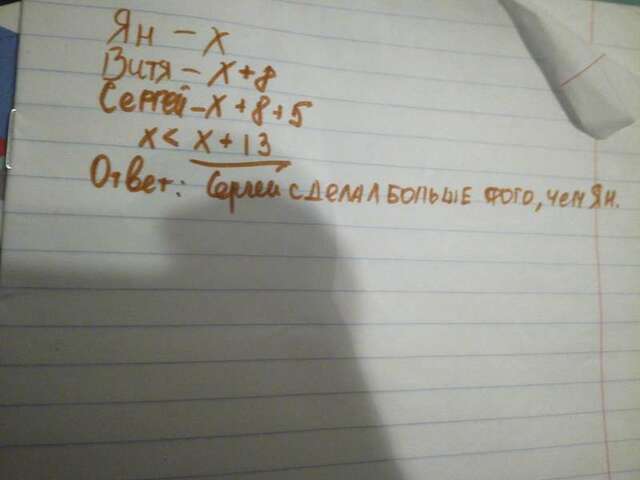 Ян - х
Витя - х+8
Сергей - х+8+5
х < х+13
Ответ: Сергей сделал больше фото, чем Ян.